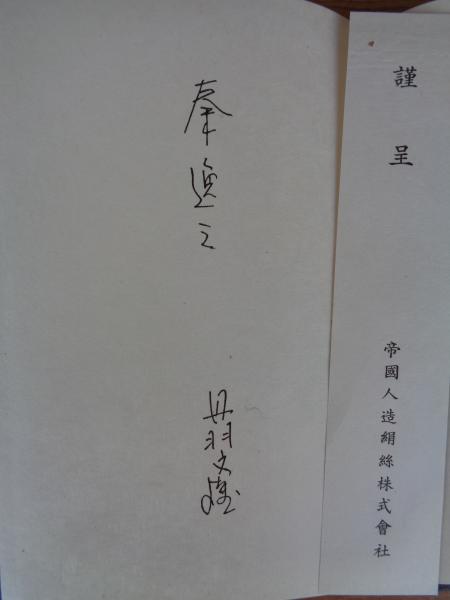 謹呈
帝國人造絹絲株式會社
秦逸三
丹羽文雄